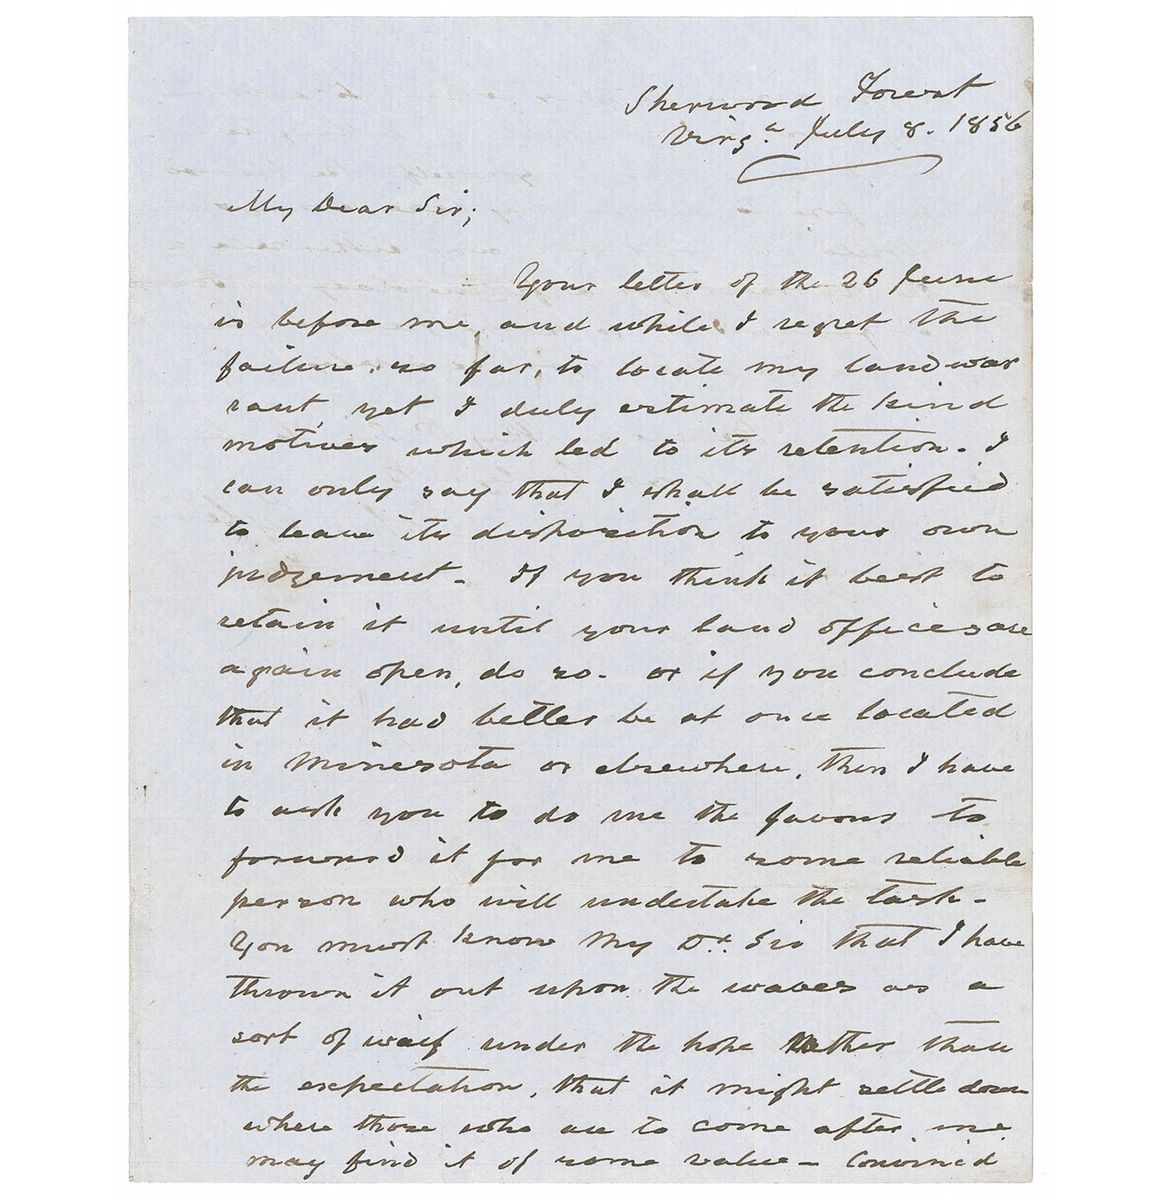 Sherwood Forest
Virga July 8. 1856
My Dear Sir;
Your letter of the 26 June
is before me, and while I regret the
failure, so far, to locate my land war
rant yet I duly estimate the kind
motives which led to its retention. I
can only say that I shall be satisfied
to leave its disposition to your own
judgement. If you think it best to
retain it until your land offices are
again open, do so. or if you conclude
that it had better be at once located
in Minnesota or elsewhere, then I have
to ask you to do me the favour to
forward it for me to some reliable
person who will undertake the task.
You must know My Dr. Sir that I have
thrown it out upon the waves as a
sort of waif under the hope rather than
the expectation, that it might settle down
where those who are to come after me
may find it of some value. Convinc'd